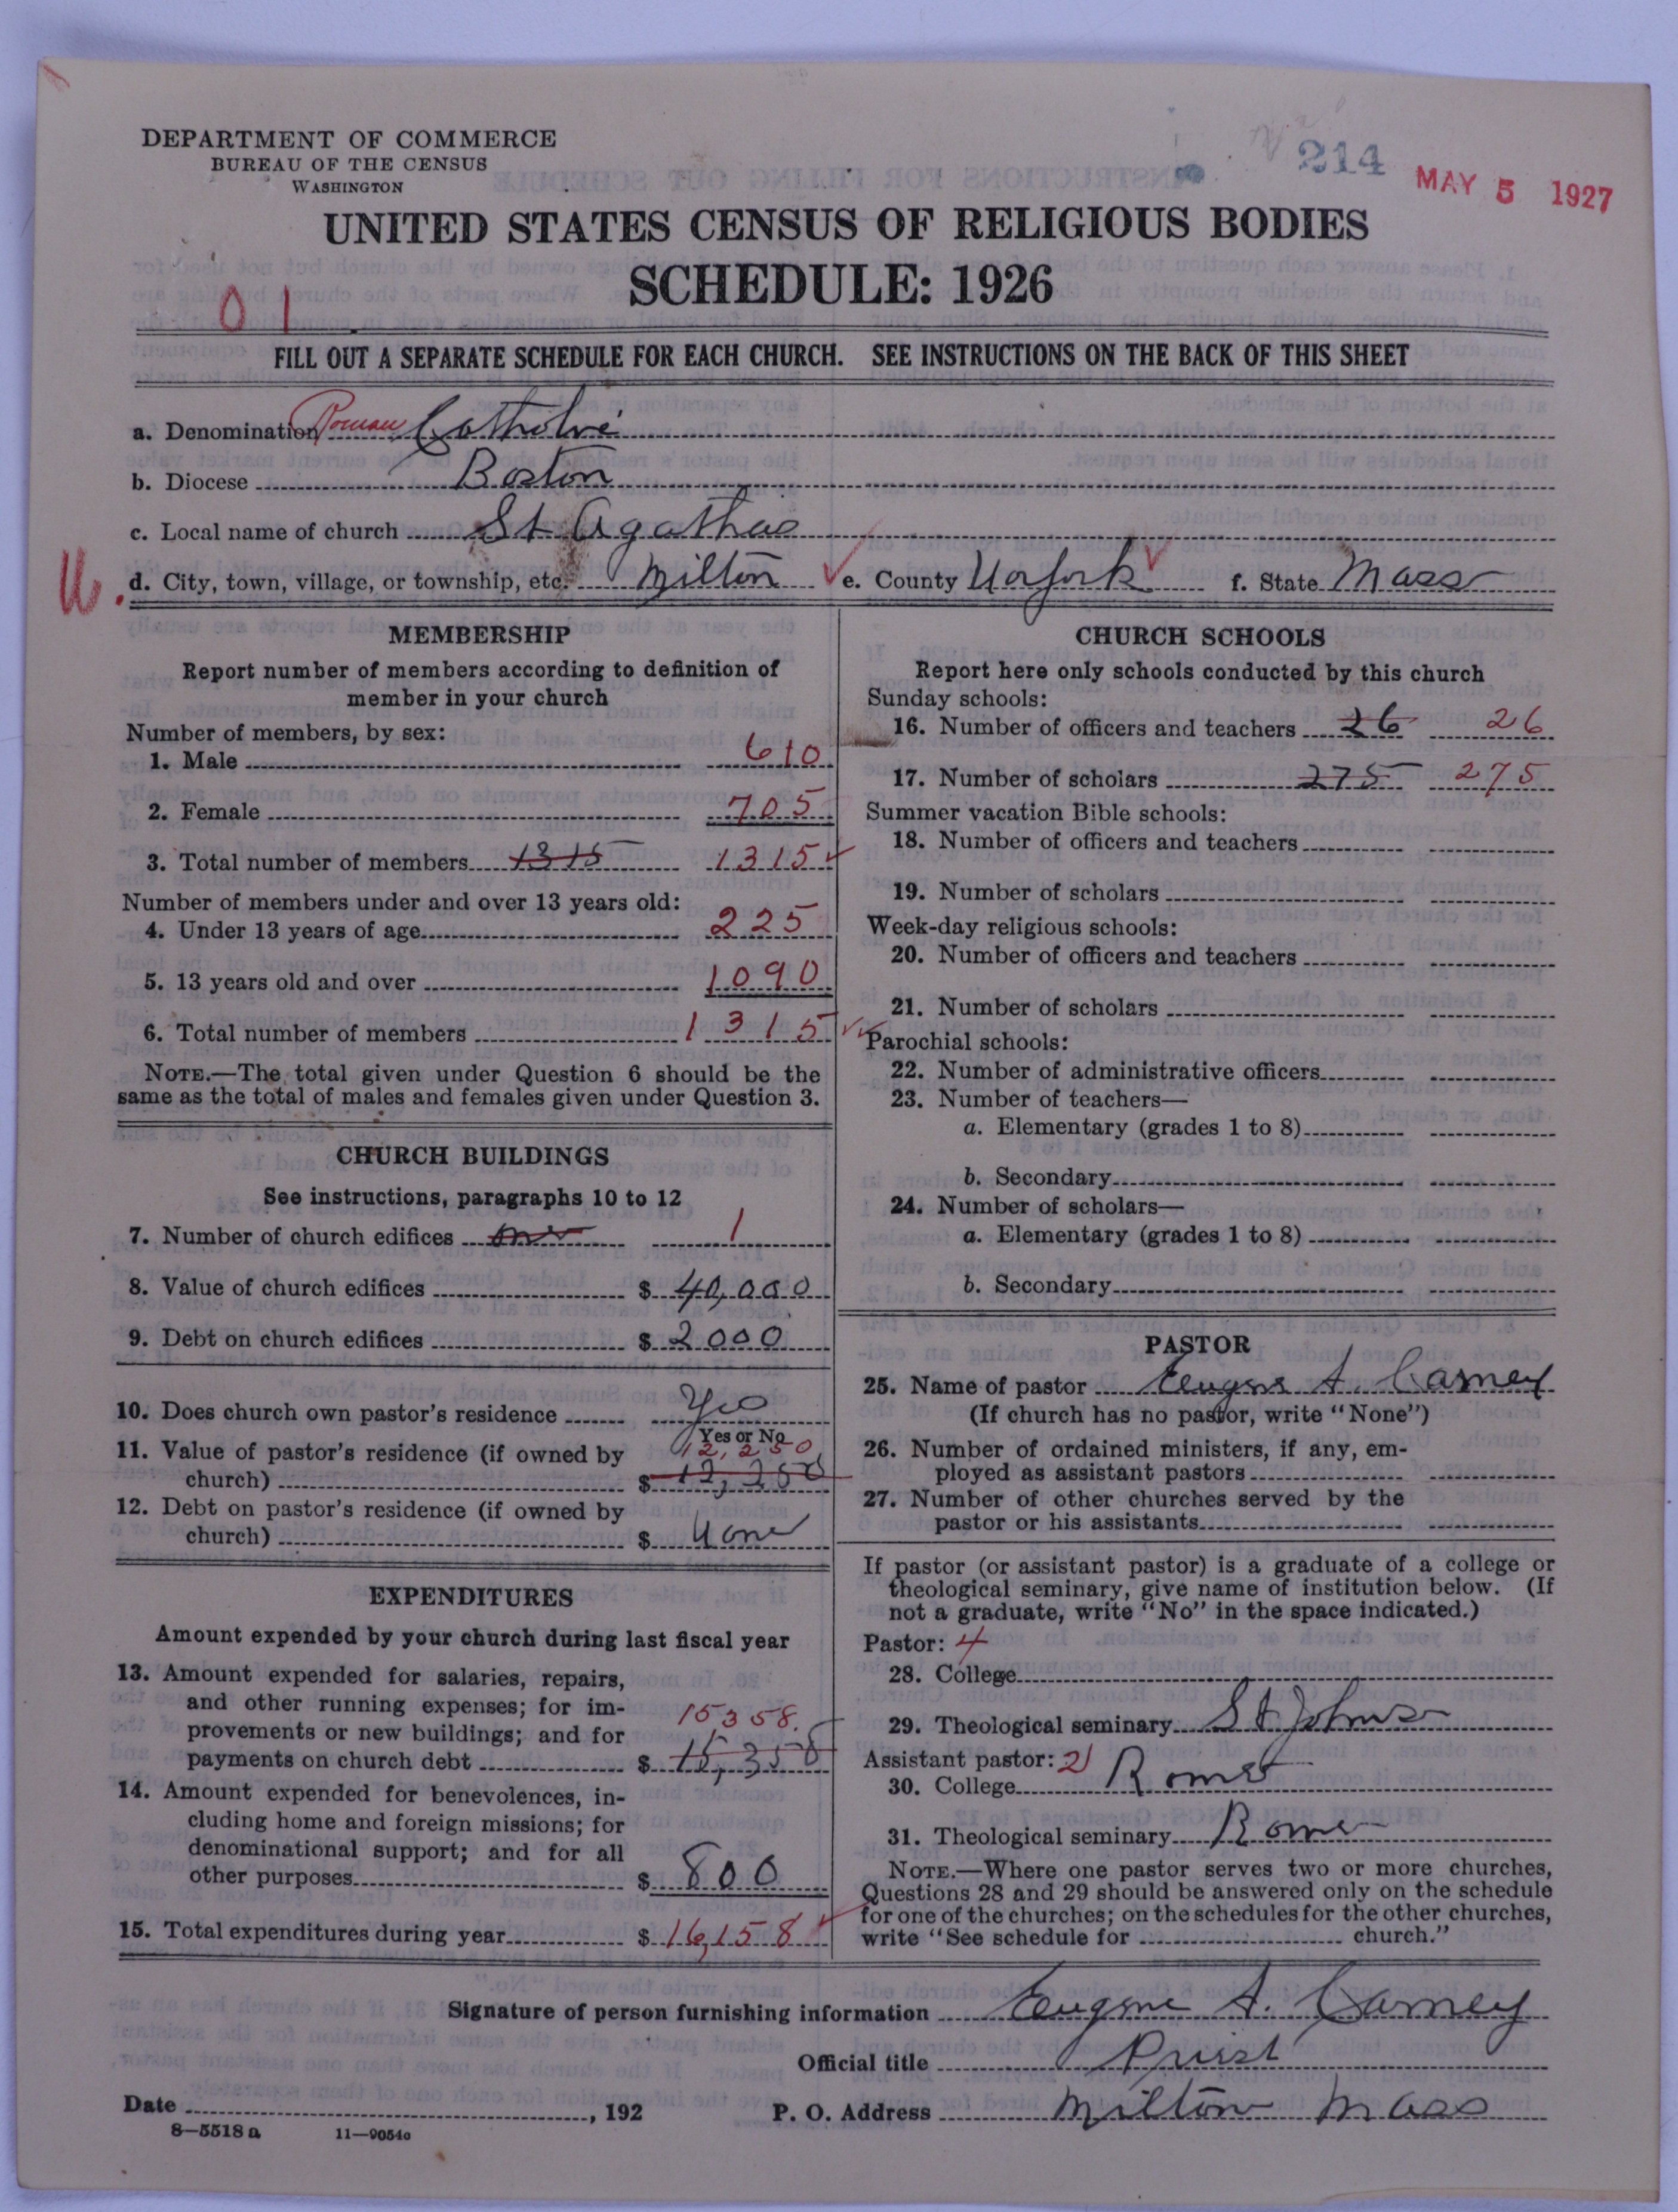 214
MAY 5 1927
DEPARTMENT OF COMMERCE
BUREAU OF THE CENSUS
WASHINGTON
UNITED STATES CENSUS OF RELIGIOUS BODIES
SCHEDULE: 1926
01
FILL OUT A SEPARATE SCHEDULE FOR EACH CHURCH. SEE INSTRUCTIONS ON THE BACK OF THIS SHEET
a. Denomination Roman Catholic
b. Diocese Boston
c. Local name of church St Agathas
d. City, town, village, or township, etc. Milton e. County Norfolk f. State Mass
MEMBERSHIP
Report number of members according to definition of
member in your church
Number of members, by sex:
1. Male 610
2. Female 705
3. Total number of members 1315 1315
Number of members under and over 13 years old:
4. Under 13 years of age 225
5. 13 years old and over 1090
6. Total number of members 1315
NOTE.—The total given under Question 6 should be the
same as the total of males and females given under Question 3.
CHURCH BUILDINGS
See instructions, paragraphs 10 to 12
7. Number of church edifices one 1
8. Value of church edifices $ 40,000
9. Debt on church edifices $ 2000
10. Does church own pastor's residence Yes
Yes or No
11. Value of pastor's residence (if owned by 12,250
church) $ 12,250
12. Debt on pastor's residence (if owned by
church) $ None
EXPENDITURES
Amount expended by your church during last fiscal year
13. Amount expended for salaries, repairs,
and other running expenses; for im-
provements or new buildings; and for 15358.
payments on church debt $ 15,358
14. Amount expended for benevolences, in-
cluding home and foreign missions; for
denominational support; and for all
other purposes $ 800
15. Total expenditures during year $ 16,158
CHURCH SCHOOLS
Report here only schools conducted by this church
Sunday schools:
16. Number of officers and teachers 26 26
17. Number of scholars 275 275
Summer vacation Bible schools:
18. Number of officers and teachers
19. Number of scholars
Week-day religious schools:
20. Number of officers and teachers
21. Number of scholars
Parochial schools:
22. Number of administrative officers
23. Number of teachers—
a. Elementary (grades 1 to 8)
b. Secondary
24. Number of scholars—
a. Elementary (grades 1 to 8)
b. Secondary
PASTOR
25. Name of pastor Eugene A. Carney
(If church has no pastor, write "None")
26. Number of ordained ministers, if any, em-
ployed as assistant pastors
27. Number of other churches served by the
pastor or his assistants
If pastor (or assistant pastor) is a graduate of a college or
theological seminary, give name of institution below. (If
not a graduate, write "No" in the space indicated.)
Pastor: 4
28. College
29. Theological seminary St Johns
Assistant pastor: 2
30. College Rome
31. Theological seminary Rome
NOTE.—Where one pastor serves two or more churches,
Questions 28 and 29 should be answered only on the schedule
for one of the churches; on the schedules for the other churches,
write "See schedule for church."
Signature of person furnishing information Eugene A. Carney
Official title Priest
Date , 192 P. O. Address Milton Mass
8—5518a 11—9054c